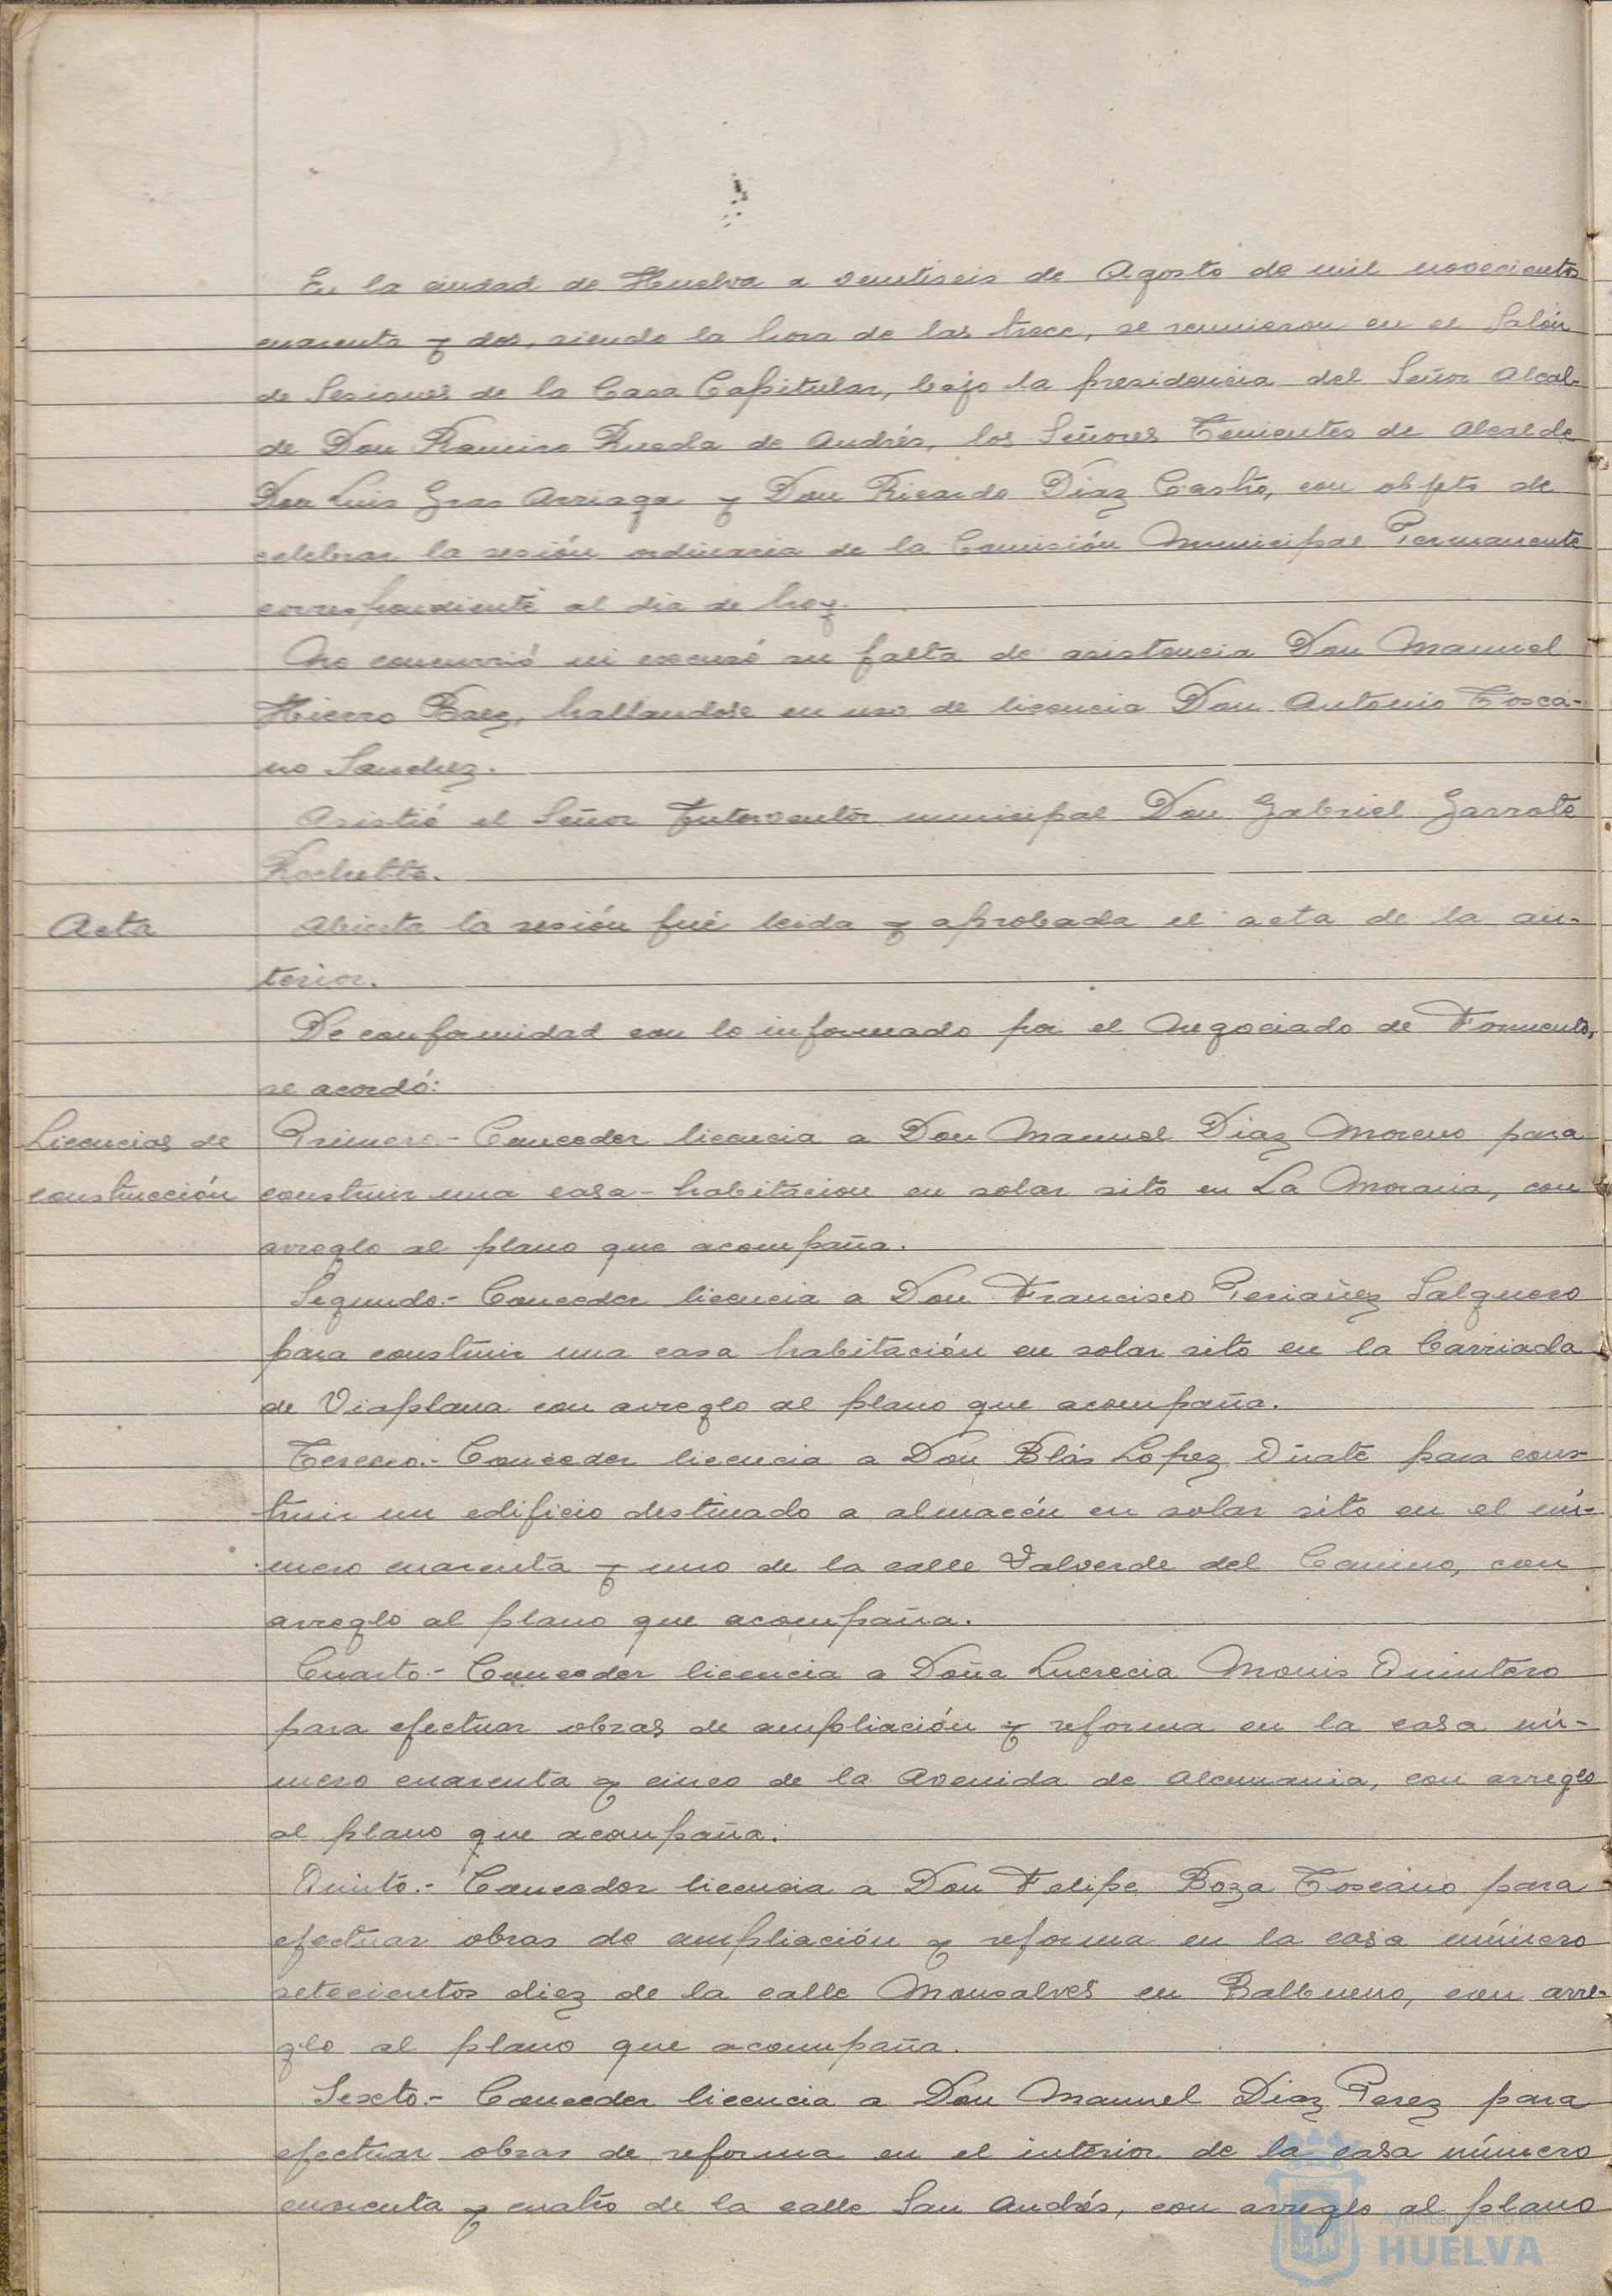 En la ciudad de Huelva a veintiseis de Agosto de mil novecientos
cuarenta y dos, siendo la hora de las trece, se reunieron en el Salón
de Sesiones de la Casa Capitular, bajo la presidencia del Señor Alcal-
de Don Ramiro Rueda de Andrés, los Señores Tenientes de Alcalde
Don Luis Gras Arriaga y Don Ricardo Díaz Castro, con objeto de
celebrar la sesión ordinaria de la Comisión Municipal Permanente
correspondiente al dia de hoy.
No concurrió ni excusó su falta de asistencia Don Manuel
Hierro Baez, hallandose en uso de licencia Don Antonio Tosca-
no Sanchez.
Asistió el Señor Interventor municipal Don Gabriel Garrote
Rochette.
Acta
Abierta la sesión fué leida y aprobada el acta de la an-
terior.
De conformidad con lo informado por el Negociado de Fomento,
se acordó:
Licencias de
construcción
Primero.- Conceder licencia a Don Manuel Diaz Moreno para
construir una casa-habitacion en solar sito en La Morana, con
arreglo al plano que acompaña.
Segundo.- Conceder licencia a Don Francisco Periañez Salguero
para construir una casa habitación en solar sito en la barriada
de Viaplana con arreglo al plano que acompaña.
Tercero.- Conceder licencia a Don Blás Lopez Oñate para cons-
truir un edificio destinado a almacén en solar sito en el nú-
mero cuarenta y uno de la calle Valverde del Camino, con
arreglo al plano que acompaña.
Cuarto.- Conceder licencia a Doña Lucrecia Monis Quintero
para efectuar obras de ampliación y reforma en la casa nú-
mero cuarenta y cinco de la Avenida de Alemania, con arreglo
al plano que acompaña.
Quinto.- Conceder licencia a Don Felipe Boza Toscano para
efectuar obras de ampliación y reforma en la casa número
setecientos diez de la calle Monsalves en Balbueno, con arre-
glo al plano que acompaña.
Sexto.- Conceder licencia a Don Manuel Diaz Perez para
efectuar obras de reforma en el interior de la casa número
cuarenta y cuatro de la calle San Andrés, con arreglo al plano
Ayuntamiento de
HUELVA